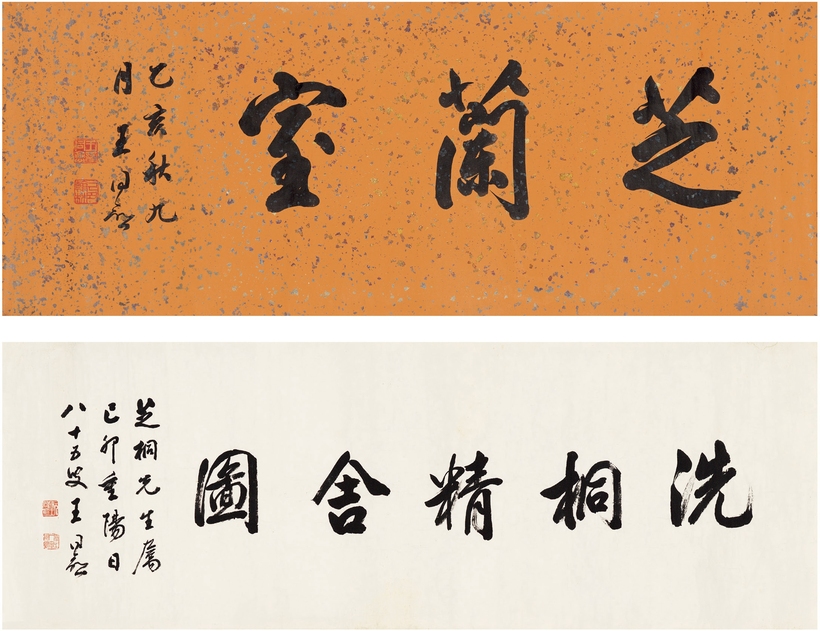 芝蘭室
乙亥秋九
月 王同愈
洗桐精舍圖
芝桐先生屬
己卯重陽日
八十五叟王同愈